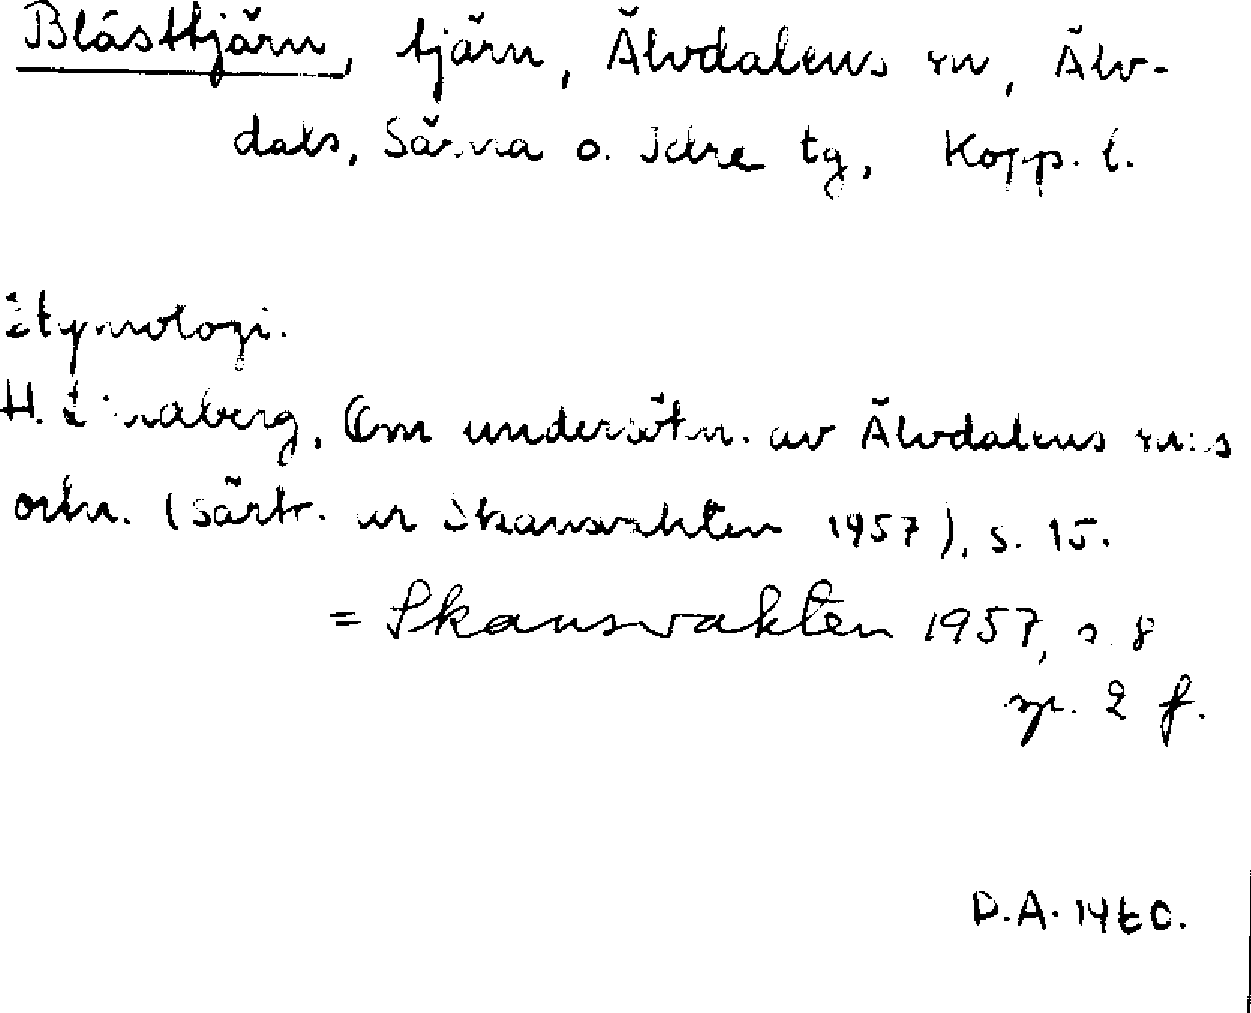 Blåsttjärn, tjärn, Älvdalens sn, Älv-
dals, Särna o. Idre tg, Kopp. l.
Etymologi.
H. Lindberg, Om undersökn. av Älvdalens sn:s
ortn. (särtr. ur Skansvakten 1957), s. 15.
= Skansvakten 1957, s. 8
sp. 2 f.
D.A. 1960.